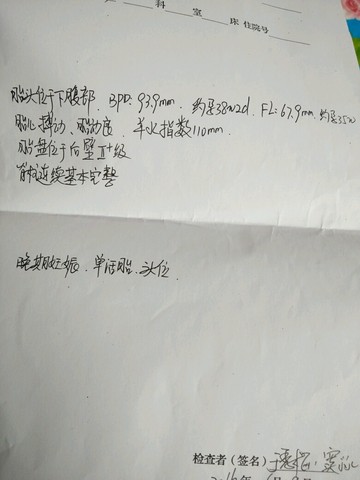 科 室 床 住院号
胎头位于下腹部. BPD: 93.9mm. 约孕38w2d. FL: 67.9mm. 约孕35w
胎心搏动、胎动良 羊水指数110mm.
胎盘位于后壁II+级
脊柱连续基本完整
晚期妊娠. 单活胎. 头位.
检查者（签名）